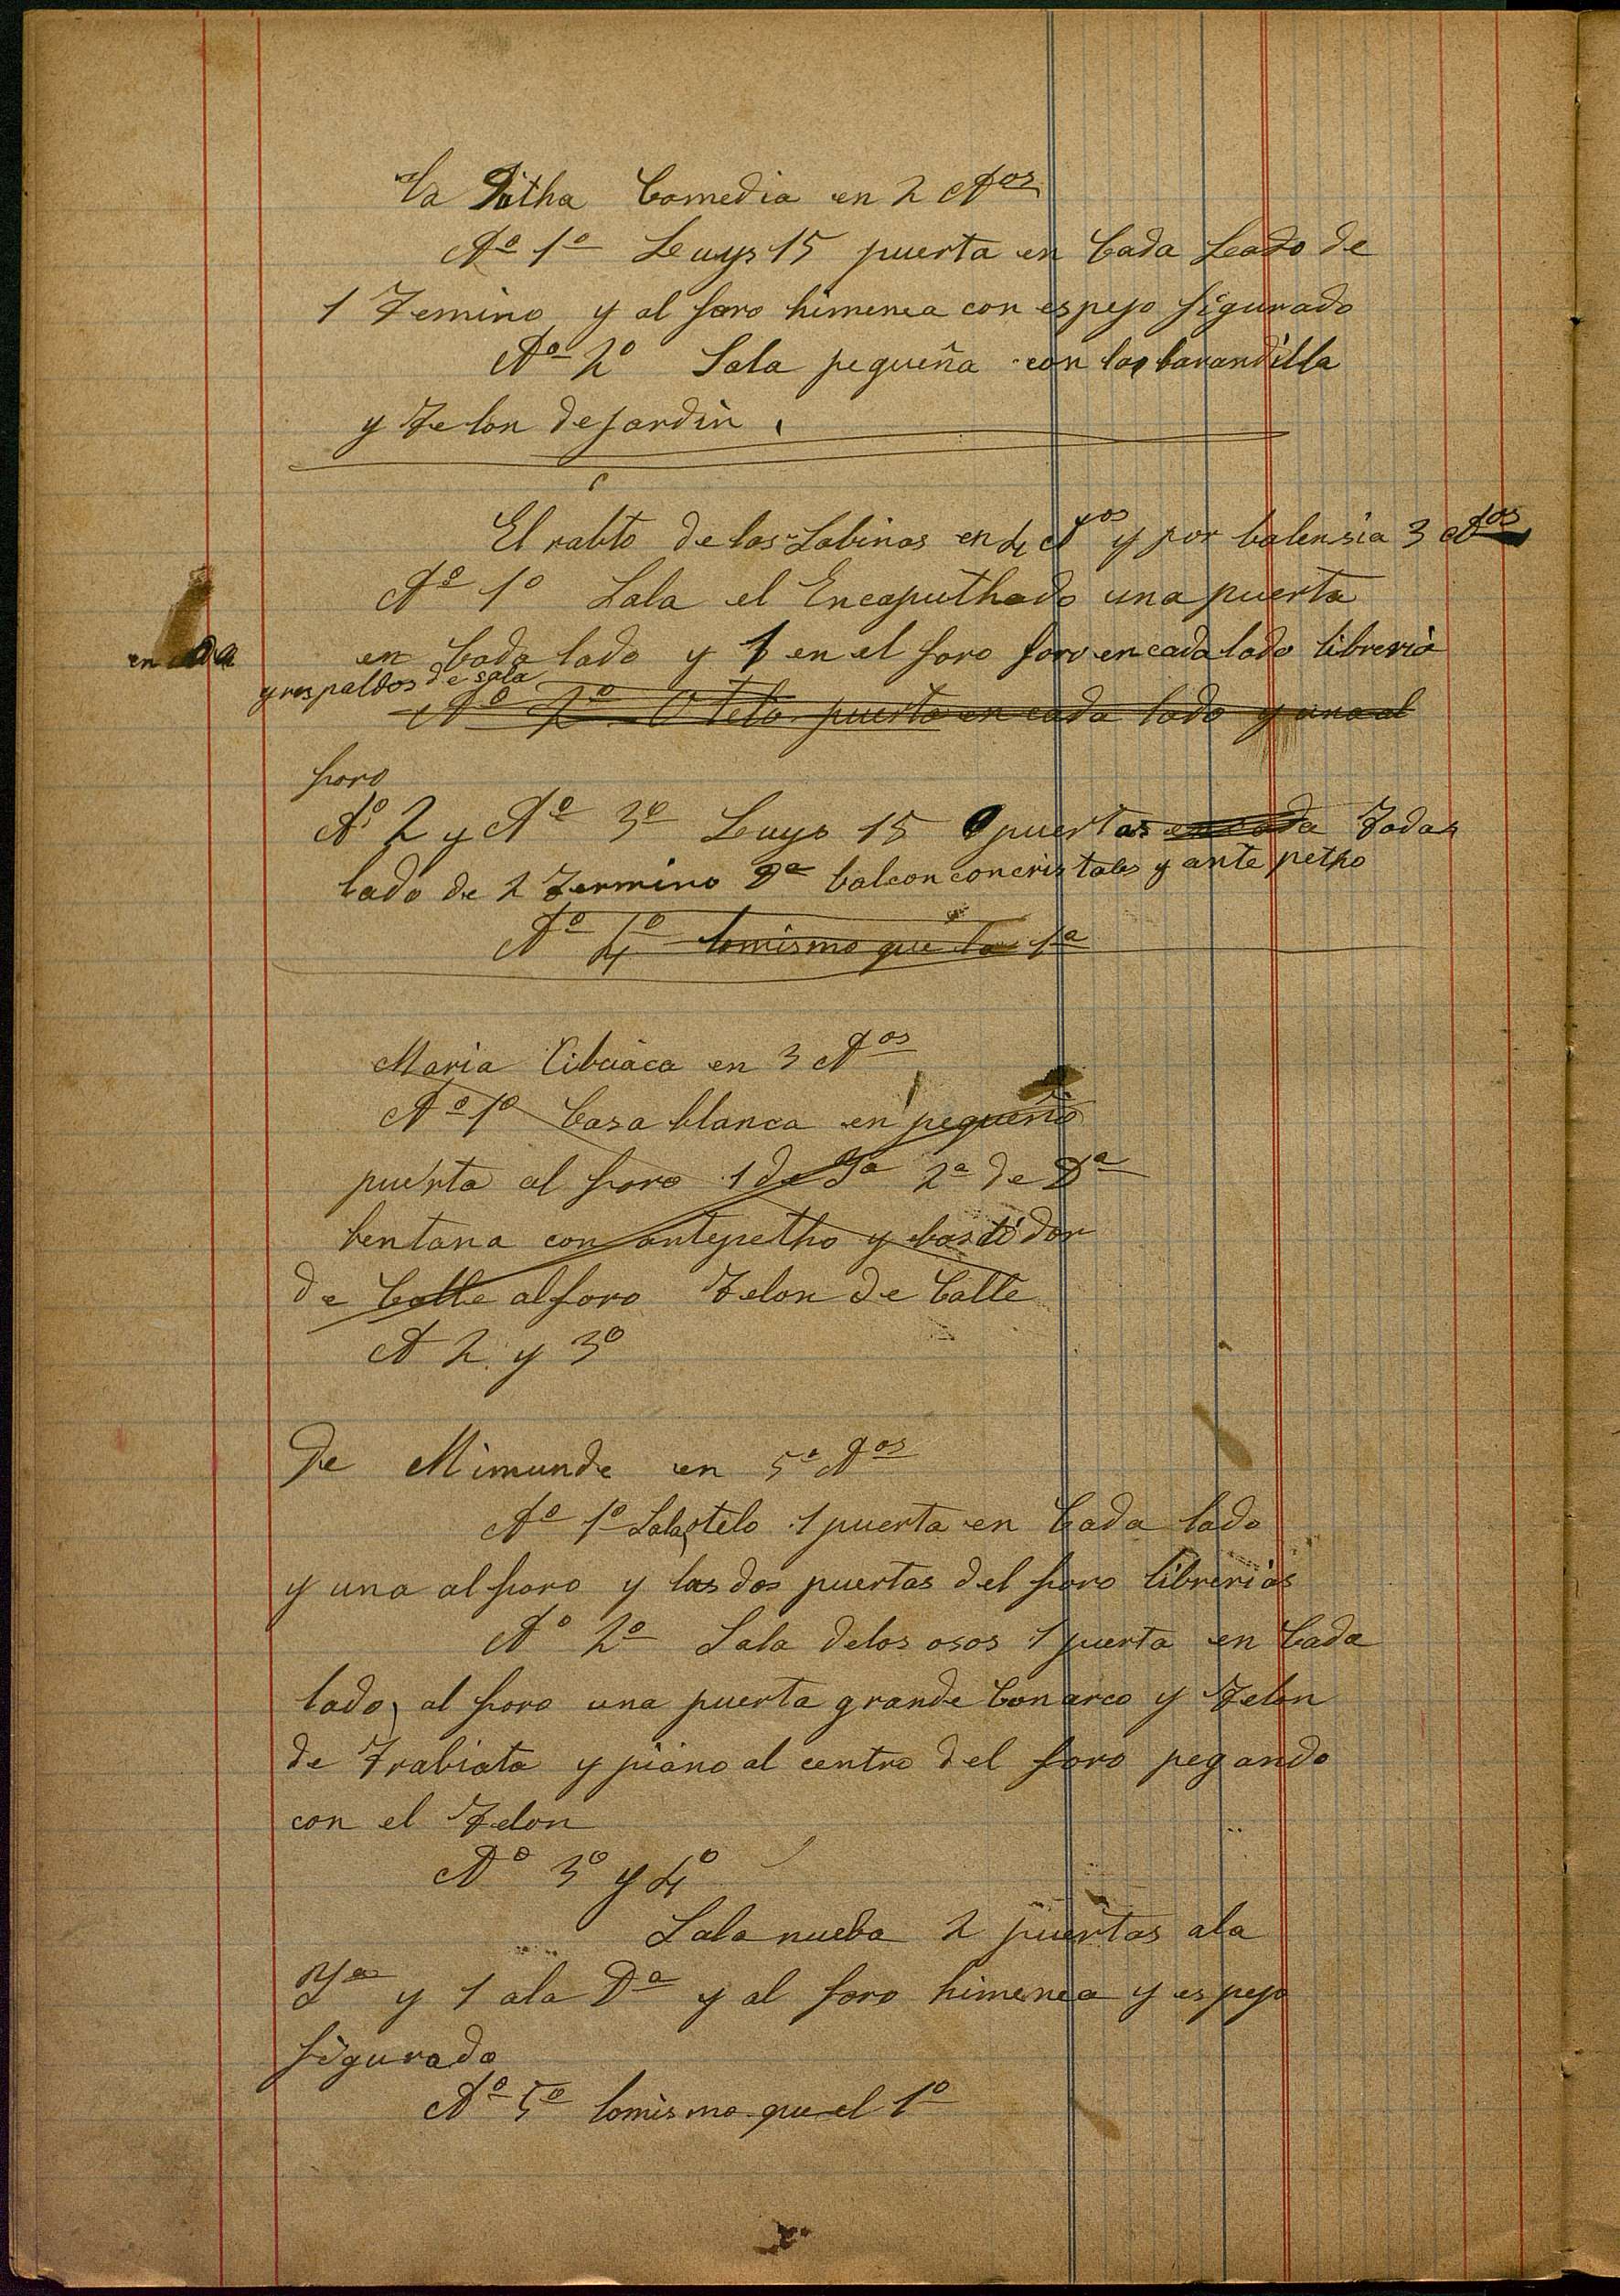 La Ditha Comedia en 2 Aos
Ao 1o Luys 15 puerta en Cada Lado de
1 Temino y al foro himenea con espejo figurado
Ao 2o Sala pequeña con la barandilla
y Telon de jardin
El rabto de las Sabinas en 4 Aos y por balensia 3 Aos
Ao 1o Sala el Encaputhado una puerta
en Cada lado y 1 en el foro foro en cada lado libreria
y respaldos de sala
Ao 2o Otelo puerta en cada lado y una al
foro
Ao 2 y Ao 3o Luys 15 puertas en cada Todas
lado de 2 Termino Da balcon con cristales y ante petho
Ao 4o lo mismo que la 1a
Maria en 3 Aos
Ao 1o Casa blanca en pequeño
puerta al foro 1 de Ya 2a de Da
bentana con antepetho y bastidor
de Calle al foro Telon de Calle
A 2 y 3o
De Mimunde en 5o Aos
Ao 1o Sala otelo 1 puerta en Cada lado
y una al foro y las dos puertas del foro librerias
Ao 2o Sala delos osos 1 puerta en Cada
lado, al foro una puerta grande Con arco y Telon
de Trabiata y piano al centro del foro pegando
con el Telon
Ao 3o y 4o
Sala nueba 2 puertas ala
Ya y 1 ala Da y al foro himenea y espejo
figurado
Ao 5o lo mismo que el 1o